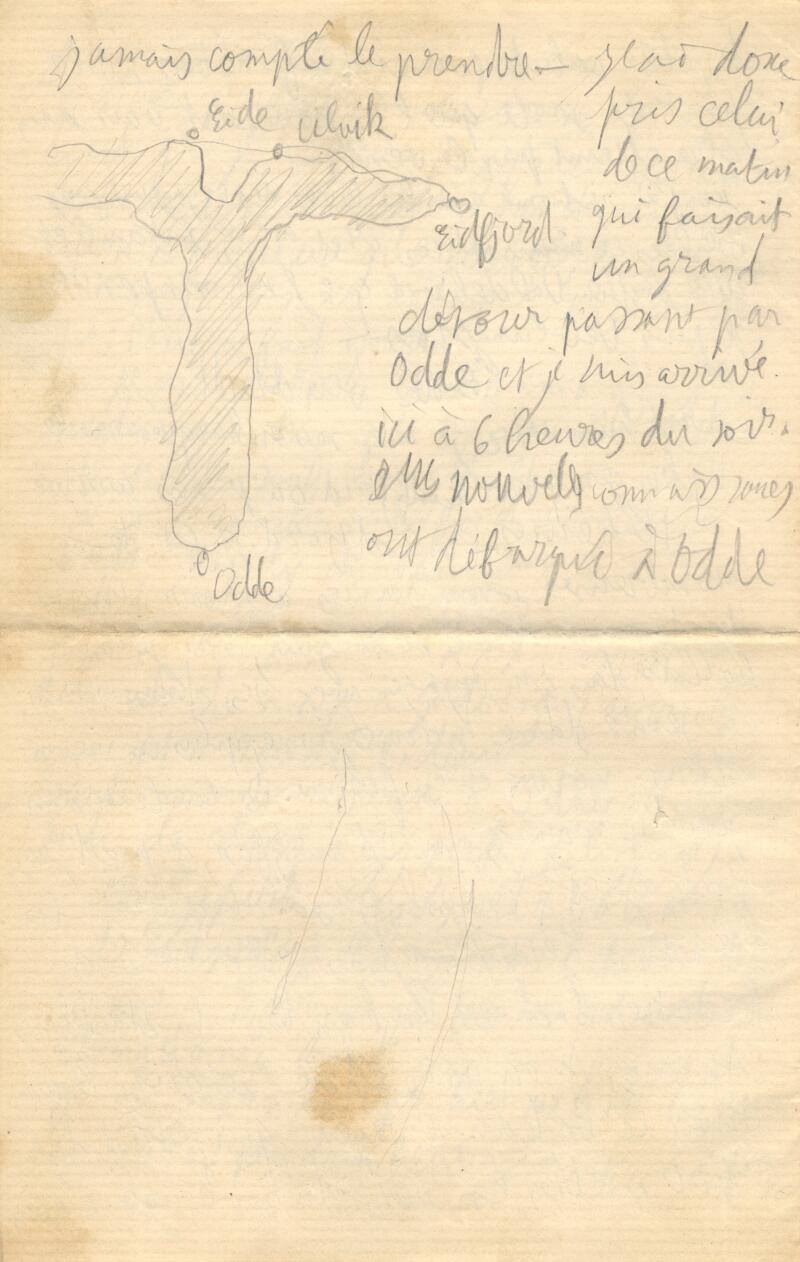 jamais compté le prendre — j'ai donc
Eide
Ulvik
Eidfjord
Odde
pris celui
de ce matin
qui faisait
un grand
détour passant par
Odde et je suis arrivé
ici à 6 heures du soir.
nouvelles connaissances
ont débarqué à Odde